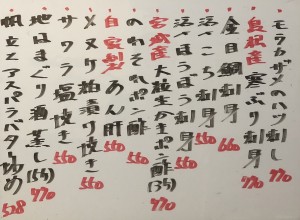 モウカザメのハツ刺し 770
島根産寒ぶり刺身 770
金目鯛刺身 660
活〆こち刺身 550
活〆ほうぼう刺身 660
宮城産大粒生かきポン酢(3ケ) 770
のれそれポン酢 550
自家製あん肝 550
メヌケ粕漬け焼き 550
サワラ塩焼き 550
地はまぐり酒蒸し(5ケ) 770
帆立とアスパラバター炒め 528